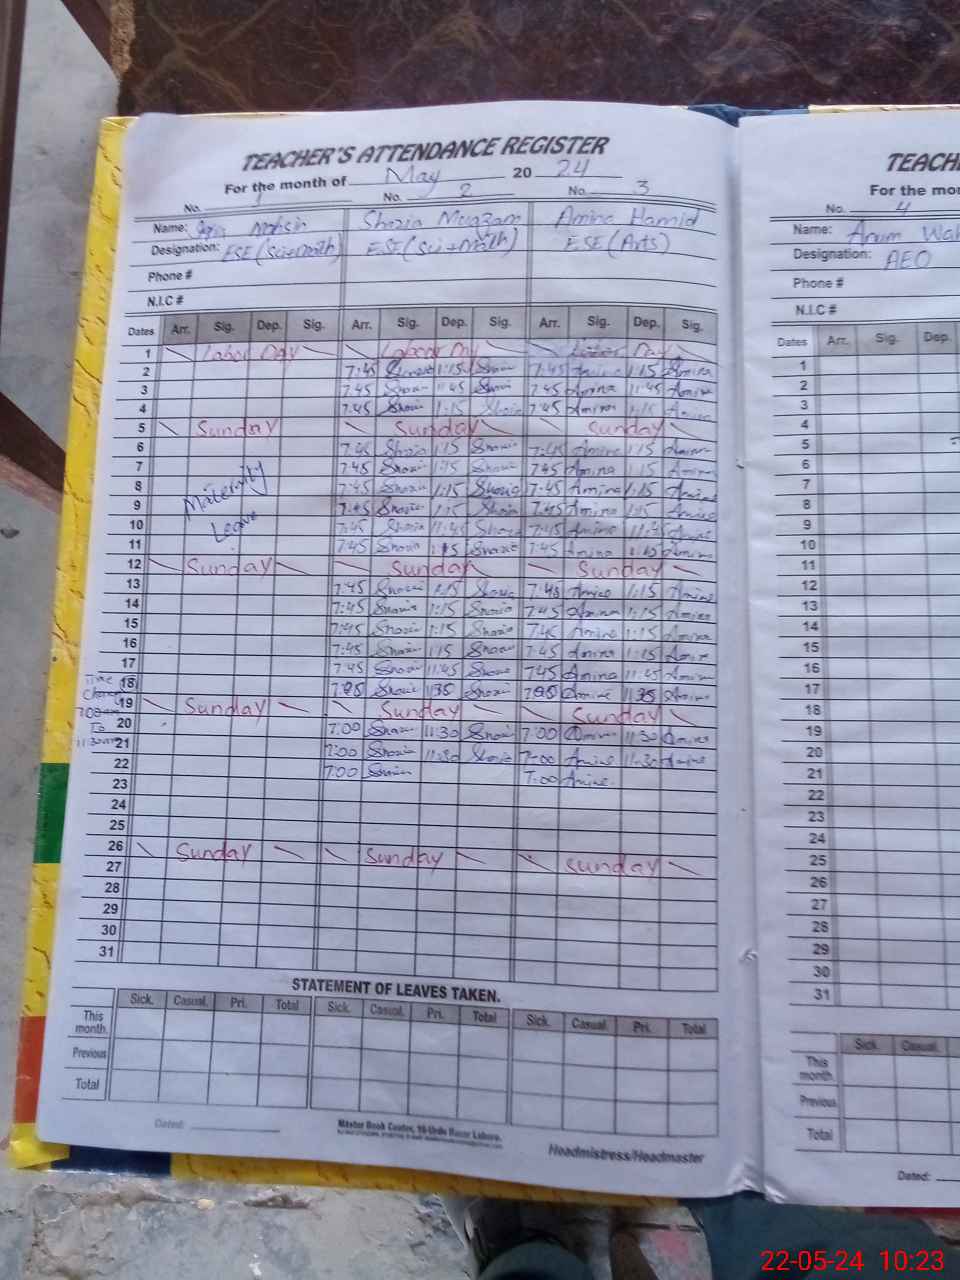 TEACHER'S ATTENDANCE REGISTER
For the month of May 2024
No. 1 No. 2 No. 3
Name: Mohsin Shazia Muazam Amina Hamid
Designation: ESE (Sci+math) ESE (Sci+math) ESE (Arts)
Phone #
N.I.C #
Dates Arr. Sig. Dep. Sig. Arr. Sig. Dep. Sig. Arr. Sig. Dep. Sig.
1 Labor Day Labour Day Labor Day
2 7:45 Shazia 1:15 Shazia 7:45 Amina 1:15 Amina
3 7:45 Shazia 11:45 Shazia 7:45 Amina 11:45 Amina
4 7:45 Shazia 1:15 Shazia 7:45 Amina 1:15 Amina
5 Sunday Sunday Sunday
6 7:45 Shazia 1:15 Shazia 7:45 Amina 1:15 Amina
7 7:45 Shazia 1:15 Shazia 7:45 Amina 1:15 Amina
8 Maternity 7:45 Shazia 1:15 Shazia 7:45 Amina 1:15 Amina
9 Leave 7:45 Shazia 1:15 Shazia 7:45 Amina 1:15 Amina
10 7:45 Shazia 11:45 Shazia 7:45 Amina 11:45 Amina
11 7:45 Shazia 1:15 Shazia 7:45 Amina 1:15 Amina
12 Sunday Sunday Sunday
13 7:45 Shazia 1:15 Shazia 7:45 Amina 1:15 Amina
14 7:45 Shazia 1:15 Shazia 7:45 Amina 1:15 Amina
15 7:45 Shazia 1:15 Shazia 7:45 Amina 1:15 Amina
16 7:45 Shazia 1:15 Shazia 7:45 Amina 1:15 Amina
17 7:45 Shazia 11:45 Shazia 7:45 Amina 11:45 Amina
18 Shazia Shazia Amina Amina
19 Sunday Sunday Sunday
20 7:00 Shazia 11:30 Shazia 7:00 Amina 11:30 Amina
21 7:00 Shazia 11:30 Shazia 7:00 Amina 11:30 Amina
22 7:00 Shazia 7:00 Amina
23
24
25
26 Sunday Sunday Sunday
27
28
29
30
31
Time
Change
7:00 am
To
11:30 am
STATEMENT OF LEAVES TAKEN.
Sick. Casual. Pri. Total Sick. Casual. Pri. Total Sick. Casual. Pri. Total
This month.
Previous
Total
Dated:
Master Book Center, Urdu Bazar Lahore.
Headmistress/Headmaster
TEACH
For the mon
No. 4
Name: Anum Wah
Designation: AEO
Phone #
N.I.C #
Dates Arr. Sig. Dep.
1
2
3
4
5
6
7
8
9
10
11
12
13
14
15
16
17
18
19
20
21
22
23
24
25
26
27
28
29
30
31
Sick. Casual.
This month
Previous
Total
Dated:
22-05-24 10:23